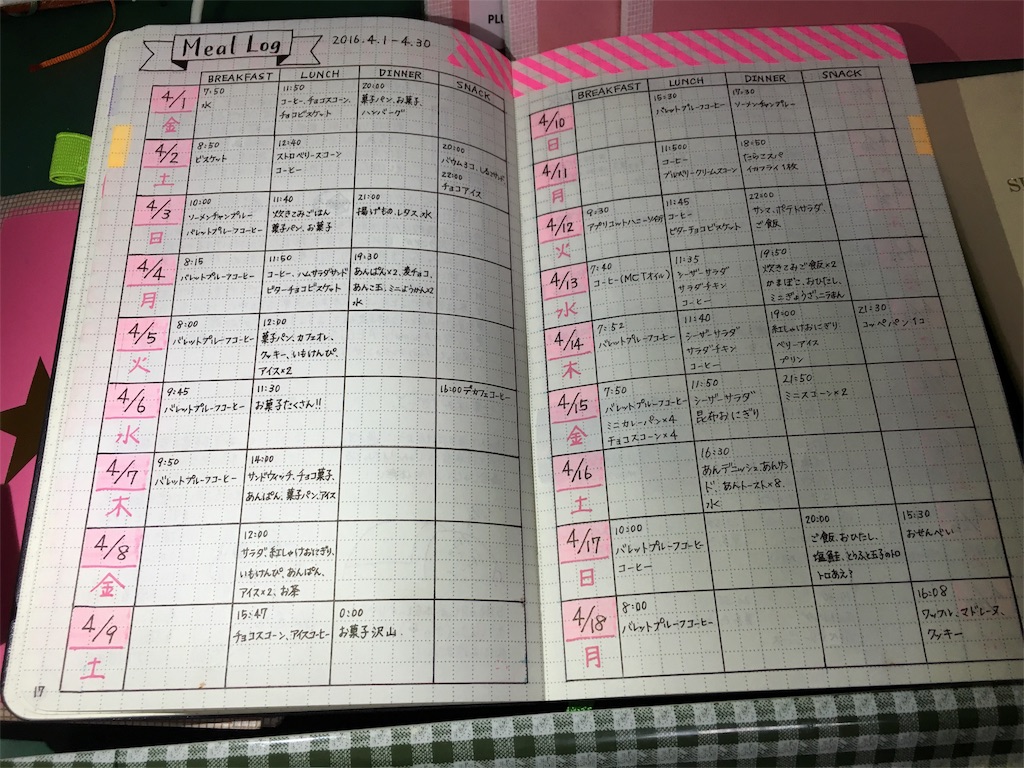 PLU
Meal Log
2016.4.1-4.30
BREAKFAST LUNCH DINNER SNACK
4/1
金
7:50
水
11:50
コーヒー、チョコスコーン、
チョコビスケット
20:00
菓子パン、お菓子、
ハンバーグ
4/2
土
8:50
ビスケット
12:40
ストロベリースコーン
コーヒー
20:00
バウム3コ、
22:00
チョコアイス
4/3
日
10:00
ソーメンチャンプルー
バレットプルーフコーヒー
11:40
炊きこみごはん
菓子パン、お菓子
21:00
揚げもの、レタス、水
4/4
月
8:15
バレットプルーフコーヒー
11:50
コーヒー、ハムサラダサンド
ビターチョコビスケット
19:30
あんぱん×2、麦チョコ、
あんこ玉、ミニようかん×2
水
4/5
火
8:00
バレットプルーフコーヒー
12:00
菓子パン、カフェオレ、
クッキー、いもけんぴ、
アイス×2
4/6
水
9:45
バレットプルーフコーヒー
11:30
お菓子たくさん!!
16:00 デカフェコーヒー
4/7
木
9:50
バレットプルーフコーヒー
14:00
サンドウィッチ、チョコ菓子、
あんぱん、菓子パン、アイス
4/8
金
12:00
サラダ、紅しゃけおにぎり、
いもけんぴ、あんぱん、
アイス×2、お茶
4/9
土
15:47
チョコスコーン、アイスコーヒー
0:00
お菓子沢山
17
BREAKFAST LUNCH DINNER SNACK
4/10
日
15:30
バレットプルーフコーヒー
17:30
ソーメンチャンプルー
4/11
月
11:500
コーヒー
ブルーベリークリームスコーン
18:50
たらこスパ
イカフライ1枚
4/12
火
9:30
アプリコットハニー
11:45
コーヒー
ビターチョコビスケット
22:00
サンマ、ポテトサラダ、
ご飯
4/13
水
7:40
コーヒー(MCTオイル)
11:35
シーザーサラダ
サラダチキン
コーヒー
19:50
炊きこみご飯×2
かまぼこ、おひたし、
ミニぎょうざ、ニラまん
4/14
木
7:52
バレットプルーフコーヒー
11:40
シーザーサラダ
サラダチキン
コーヒー
19:00
紅しゃけおにぎり
ベリーアイス
プリン
21:30
コッペパン1コ
4/15
金
7:50
バレットプルーフコーヒー
ミニカレーパン×4
チョコスコーン×4
11:50
シーザーサラダ
昆布おにぎり
21:50
ミニスコーン×2
4/16
土
16:30
あんデニッシュ、あんサン
ド、あんトースト×8、
水
4/17
日
10:00
バレットプルーフコーヒー
コーヒー
20:00
ご飯、おひたし、
塩鮭、とうふと玉子のト
ロあえ?
15:30
おせんべい
4/18
月
8:00
バレットプルーフコーヒー
16:08
ワッフル、マドレーヌ、
クッキー